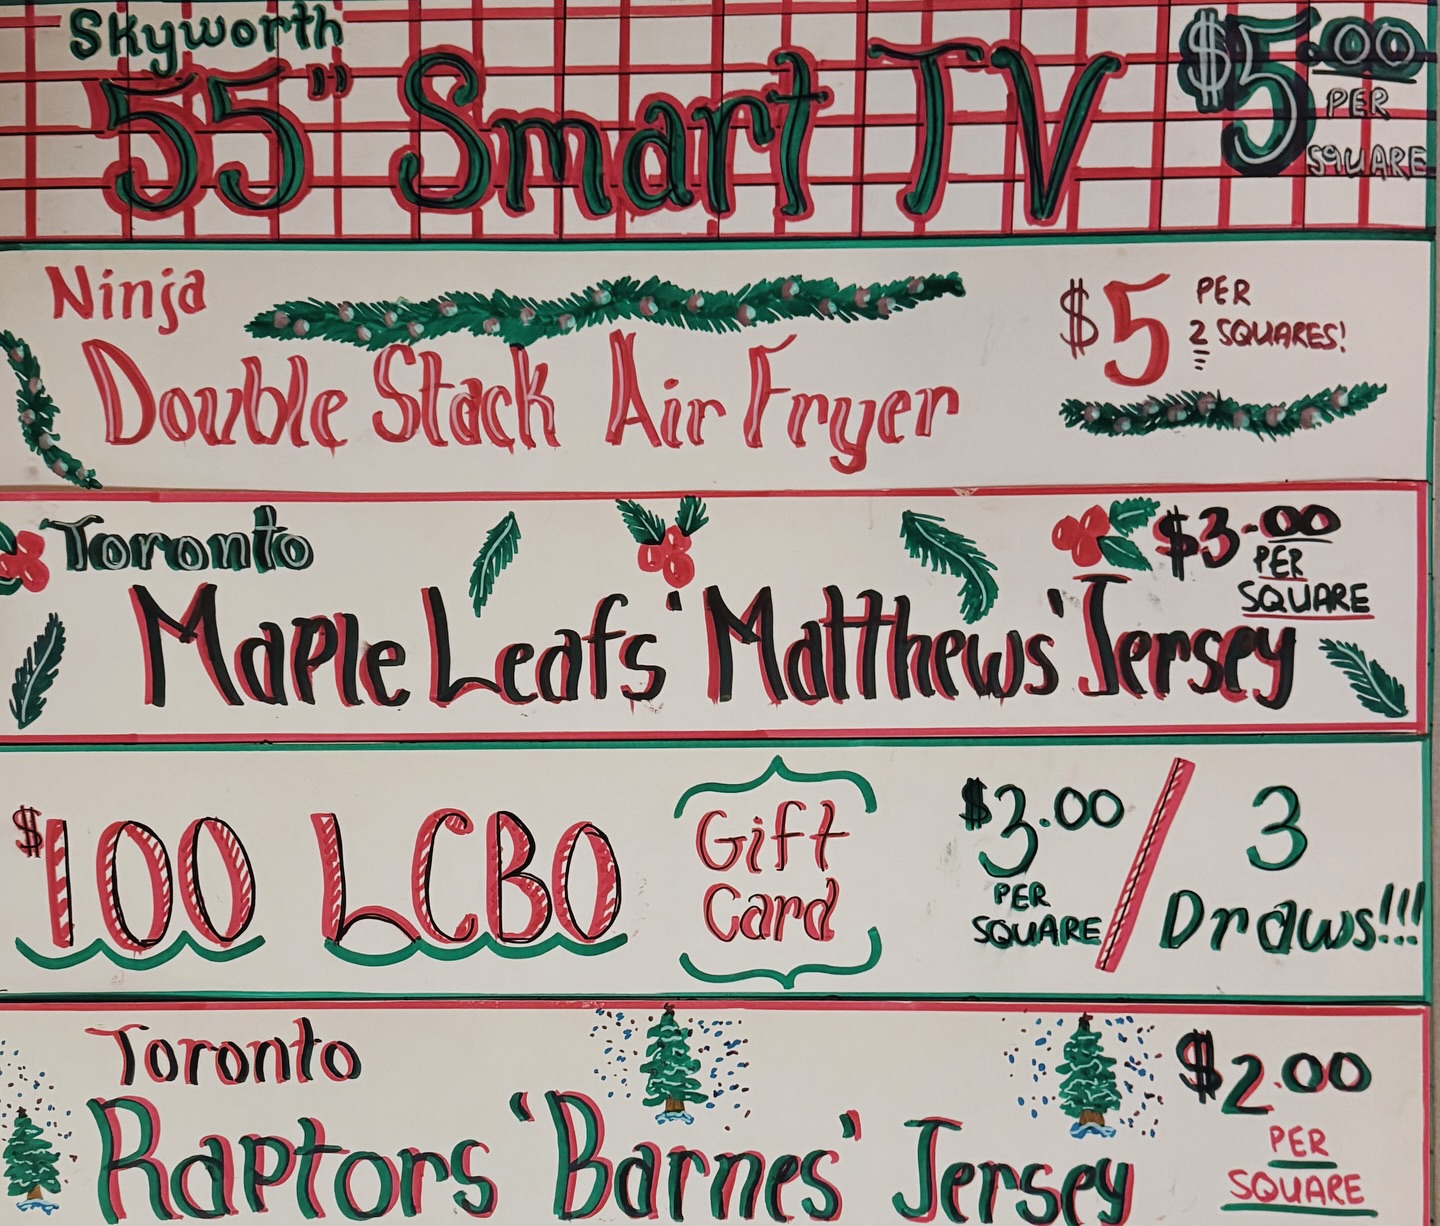 Skyworth
55" Smart TV
$5.00
PER
SQUARE
Ninja
Double Stack Air Fryer
$5 PER
2 SQUARES!
Toronto
Maple Leafs 'Matthews' Jersey
$3.00
PER
SQUARE
$100 LCBO
Gift
Card
$3.00
PER
SQUARE
/
3
Draws!!!
Toronto
Raptors 'Barnes' Jersey
$2.00
PER
SQUARE